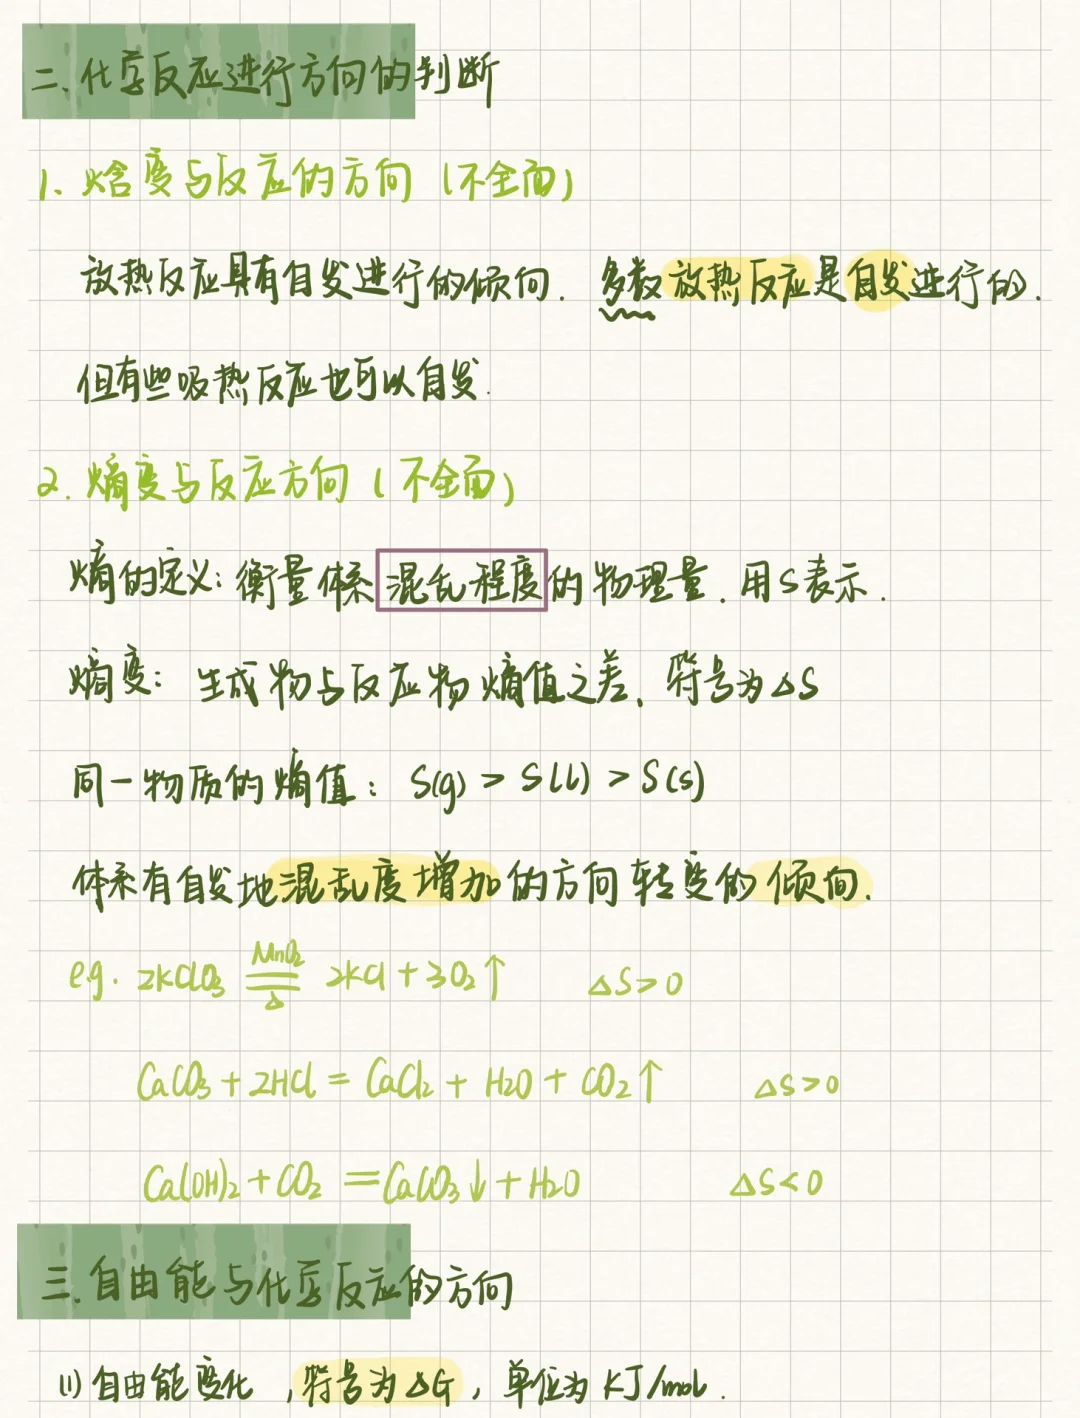 二、化学反应进行方向的判断
1、焓变与反应的方向（不全面）
放热反应具有自发进行的倾向．多数放热反应是自发进行的．
但有些吸热反应也可以自发．
2．熵变与反应方向（不全面）
熵的定义：衡量体系混乱程度的物理量．用S表示．
熵变：生成物与反应物熵值之差，符号为△S
同一物质的熵值：S(g) > S(l) > S(s)
体系有自发地混乱度增加的方向转变的倾向．
MnO₂
e.g. 2KClO₃ ══ 2KCl + 3O₂↑ △S>0
△
CaCO₃ + 2HCl = CaCl₂ + H₂O + CO₂↑ △S>0
Ca(OH)₂ + CO₂ = CaCO₃↓ + H₂O △S<0
三．自由能与化学反应的方向
(1) 自由能变化，符号为△G，单位为 KJ/mol．